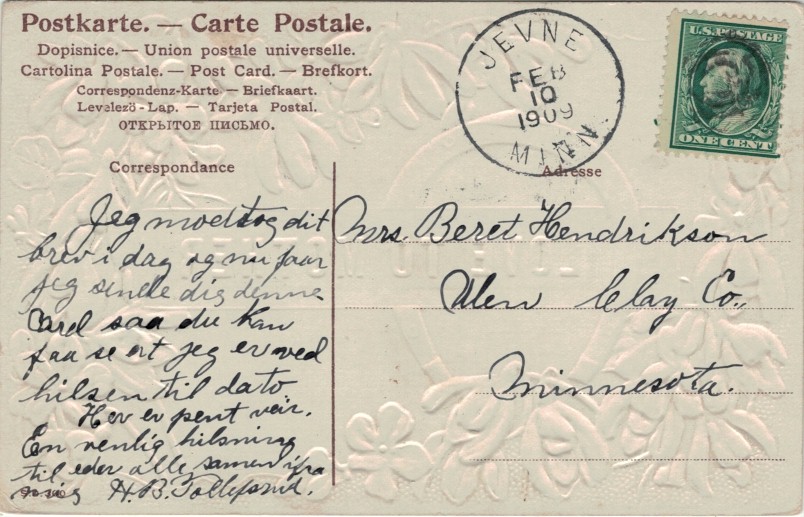 Postkarte. — Carte Postale.
Dopisnice. — Union postale universelle.
Cartolina Postale. — Post Card. — Brefkort.
Correspondenz-Karte — Briefkaart.
Levelező-Lap. — Tarjeta Postal.
ОТКРЫТОЕ ПИСЬМО.
JEVNE
FEB
10
1909
MINN
U.S. POSTAGE
ONE CENT
Correspondance
Adresse
Jeg modtog dit
brev i dag og nu faar
jeg sende dig denne
Card saa du kan
faa se at jeg er ved
hilsen til dato
Her er pent veir.
En venlig hilsning
til eder alle samen ifra
mig H.B. Tollefsrud.
Mrs Beret Hendrikson
Ulen Clay Co.,
Minnesota.